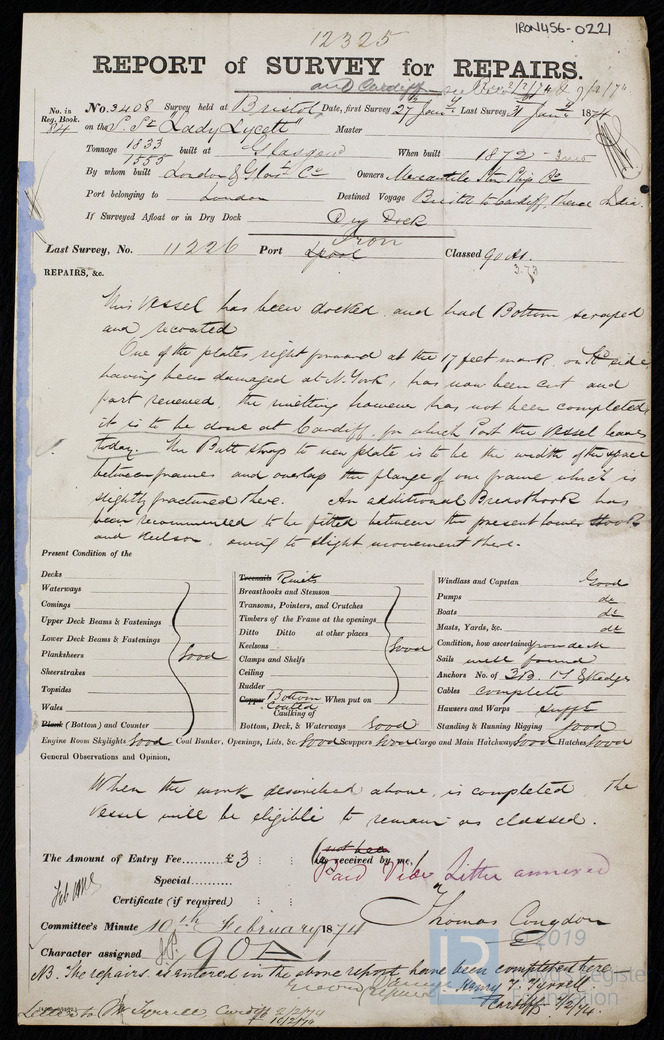 IRON456-0221
12325
REPORT of SURVEY for REPAIRS.
and Cardiff
No. in Reg. Book. 84
No. 3408 Survey held at Bristol Date, first Survey 27 Jany Last Survey 31 Jany 1874
on the S. Sr "Lady Lycett" Master
Tonnage 1833 1555 built at Glasgow When built 1872
By whom built London & Glasw Co Owners Mercantile Stm Ship Co
Port belonging to London Destined Voyage Bristol to Cardiff, thence India
If Surveyed Afloat or in Dry Dock Dry Dock
Iron
Last Survey, No. 11226 Port Lpool Classed 90 A1.
3.73
REPAIRS, &c.
This Vessel has been docked, and had Bottom scraped
and recoated
One of the plates, right forward at the 17 feet mark, on St. side,
having been damaged at N. York, has now been cut and
part renewed, the rivetting however has not been completed,
it is to be done at Cardiff, for which Port the Vessel leaves
today. The Butt strap to new plate is to be the width of the space
between frames and overlap the flange of one frame which is
slightly fractured there. An additional Breasthook has
been recommended to be fitted between the present lower hook
and Keelson, owing to slight movement there.
Present Condition of the
Decks
Waterways
Comings
Upper Deck Beams & Fastenings
Lower Deck Beams & Fastenings
Planksheers Good
Sheerstrakes
Topsides
Wales
Plank (Bottom) and Counter
Treenails Rivets
Breasthooks and Stemson
Transoms, Pointers, and Crutches
Timbers of the Frame at the openings
Ditto Ditto at other places
Keelsons Good
Clamps and Shelfs
Ceiling
Rudder
Copper Bottom Coated When put on
Caulking of
Bottom, Deck, & Waterways Good
Windlass and Capstan Good
Pumps do
Boats do
Masts, Yards, &c. do
Condition, how ascertained from deck
Sails well found
Anchors No. of 3 B. 1 S & Kedge
Cables complete
Hawsers and Warps Sufft
Standing & Running Rigging Good
Engine Room Skylights Good Coal Bunker, Openings, Lids, &c. Good Scuppers Good Cargo and Main Hatchway Good Hatches Good
General Observations and Opinion,
When the work described above, is completed, the
Vessel will be eligible to remain as classed.
The Amount of Entry Fee......... £ 3 : : is received by me,
Special...... : : Paid Vide Letter annexed
Certificate (if required) : :
Thomas Congdon
Committee's Minute 10th February 1874
Character assigned 90A
NB. The repairs as entered in the above report have been completed here
Henry T. Tyrrell.
Cardiff 9/2/74.
Letter to Mr Tyrrell, Cardiff 2/2/74
10/2/74
© 2019
Foundation